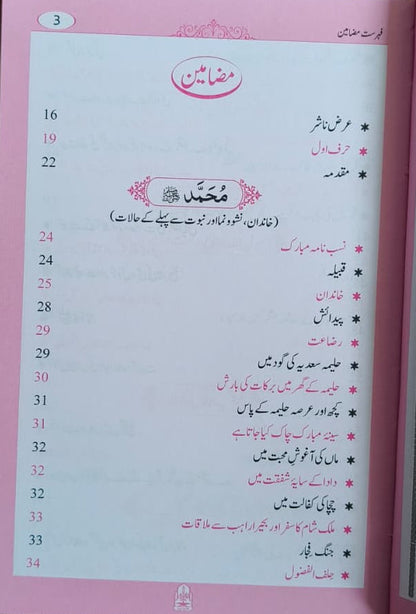 فہرست مضامین 3
مضامین
عرض ناشر 16
حرف اول 19
مقدمہ 22
مُحَمَّد ﷺ
(خاندان، نشوونما اور نبوت سے پہلے کے حالات)
نسب نامہ مبارک 24
قبیلہ 24
خاندان 25
پیدائش 28
رضاعت 29
حلیمہ سعدیہ کی گود میں 29
حلیمہ کے گھر میں برکات کی بارش 30
کچھ اور عرصہ حلیمہ کے پاس 31
سینۂ مبارک چاک کیا جاتا ہے 31
ماں کی آغوشِ محبت میں 32
دادا کے سایۂ شفقت میں 32
چچا کی کفالت میں 32
ملک شام کا سفر اور بحیرا راہب سے ملاقات 33
جنگ فِجار 33
حلف الفضول 34